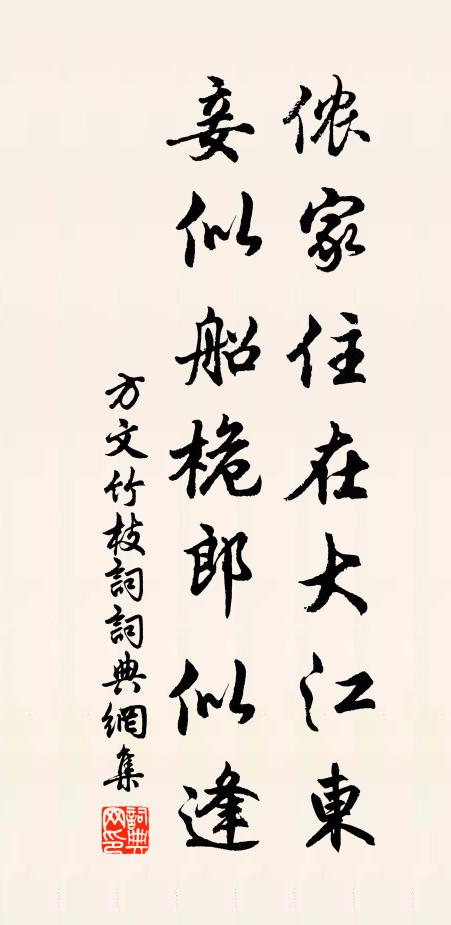 侬家住在大江東
妾似船桅郎似逢
方文竹枝詞詞典網集
詞典网印